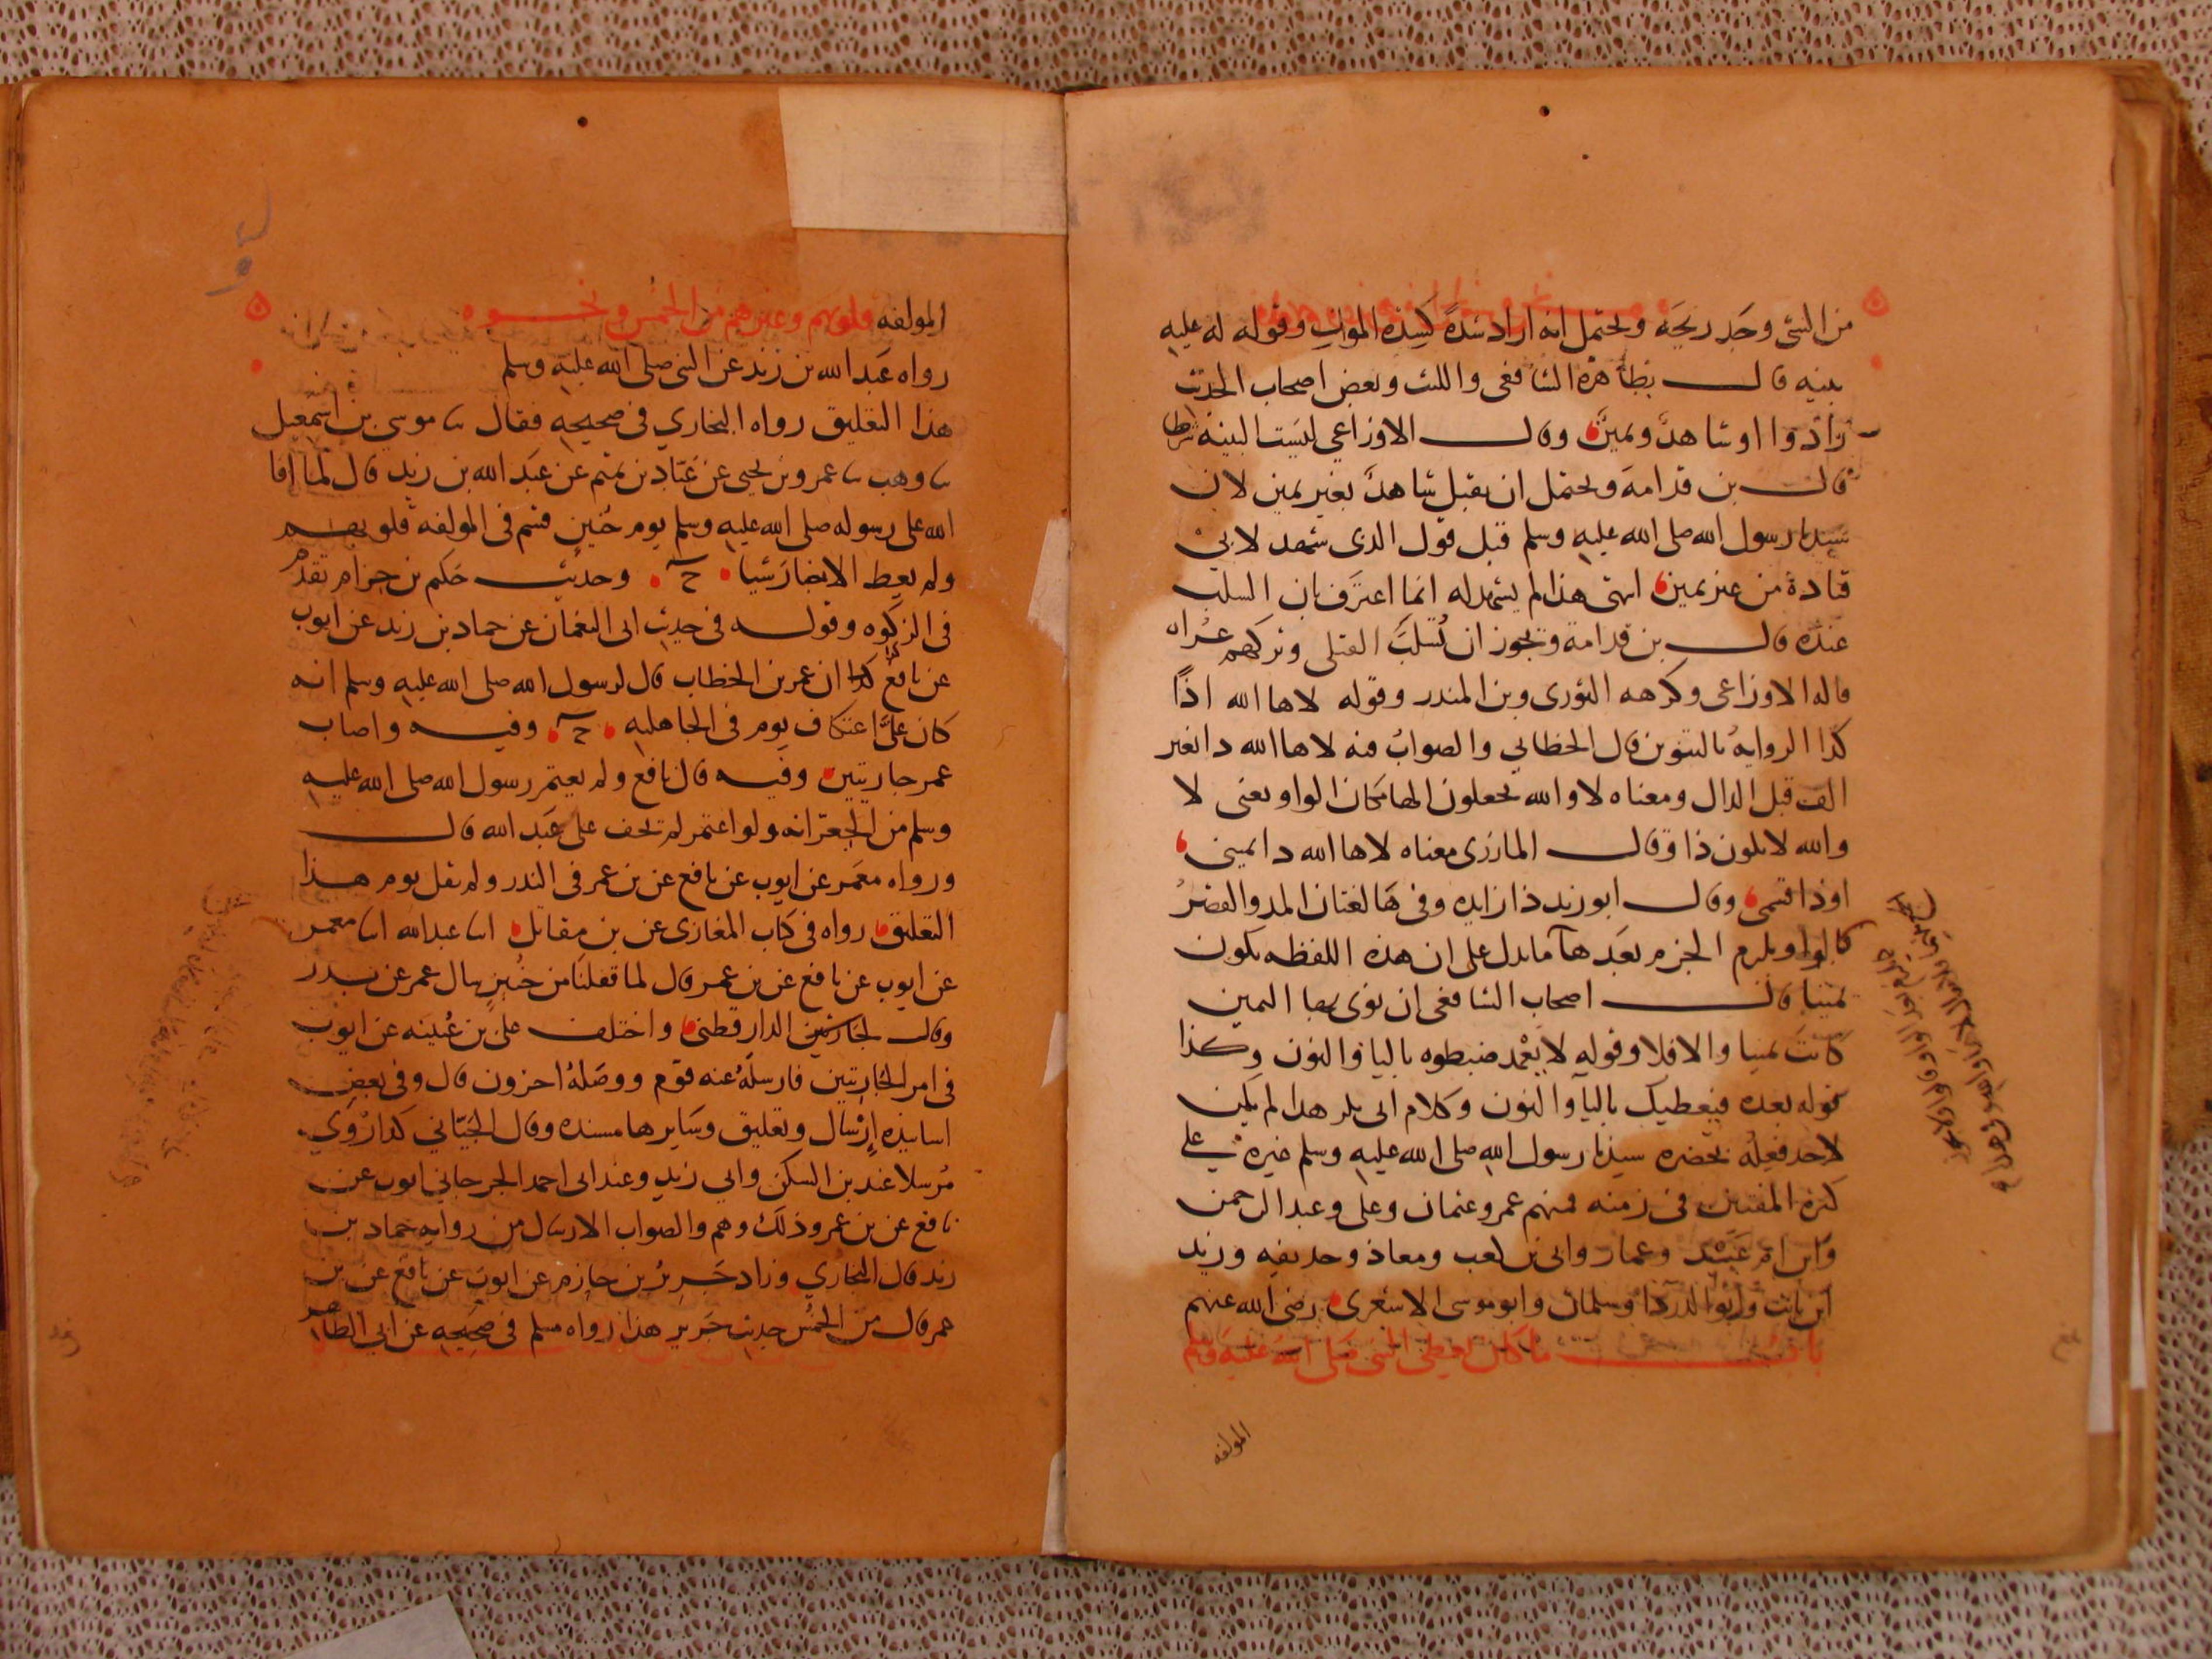 من الشى وجد ريحه ويحتمل انه اراد شدة كشدة الموت وقوله له عليه
بينه قال بظاهره الشافعى والليث وبعض اصحاب الحديث
زادوا او شاهد ويمين وقال الاوزاعي ليست البينه شرطا
قال بن قدامة ويحتمل ان يقبل شاهد بغير يمين لان
سيدنا رسول الله صلى الله عليه وسلم قبل قول الذى شهد لابى
قتادة من غير يمين انتهى هذا لم يشهد له انما اعترف بان السلب
عنده قال بن قدامة ويجوز ان تُسلب القتلى وتركهم عُراه
قاله الاوزاعى وكرهه الثورى وبن المنذر وقوله لاها الله اذًا
كذا الرواية بالتنوين قال الخطابي والصواب فيه لاها الله ذا بغير
الف قبل الذال ومعناه لا والله يجعلون الها مكان الواو يعنى لا
والله لا يكون ذا وقال المازرى معناه لاها الله ذا يمينى
او ذا قسمى وقال ابو زيد ذا زايده وفى ها لغتان المد والقصر
قالوا ويلزم الجزم بعدها مايدل على ان هذه اللفظه تكون
يمينا قال اصحاب الشافعى ان نوى بها اليمين
كانت يمينا والا فلا وقوله لا يعمد ضبطوه باليا والنون وكذا
قوله بعده فيعطيك باليا والنون وكلام ابى بكر هذا لم يكن
لاحد فعله بحضرة سيدنا رسول الله صلى الله عليه وسلم غيره على
كثرة المفتين فى زمنه فمنهم عمر وعثمان وعلى وعبد الرحمن
وابن ام عبد وعمار وابى بن كعب ومعاذ وحذيفه وزيد
ابن ثابت وابو الدردا وسلمان وابو موسى الاشعرى رضى الله عنهم
باب ما كان يعطى النبى صلى الله عليه وسلم
المولفه
المولفه قلوبهم وغيرهم من الخمس ونحوه
رواه عبد الله بن زيد عن النبى صلى الله عليه وسلم
هذا التعليق رواه البخاري فى صحيحه فقال ثنا موسى بن اسمعيل
ثنا وهب ثنا عمرو بن يحيى عن عباد بن تميم عن عبد الله بن زيد قال لما افا
الله على رسوله صلى الله عليه وسلم يوم حنين قسم فى المولفه قلوبهم
ولم يعط الانصار شيا ح وحديث حكيم بن حزام تقدم
فى الزكوه وقوله فى حديث ابى النعمان عن حماد بن زيد عن ايوب
عن نافع كذا ان عمر بن الخطاب قال لرسول الله صلى الله عليه وسلم انه
كان علىّ اعتكاف يوم فى الجاهليه ح وفيه واصاب
عمر جاريتين وفيه قال نافع ولم يعتمر رسول الله صلى الله عليه
وسلم من الجعرانه ولو اعتمر لم تخف على عبد الله قال
ورواه معمر عن ايوب عن نافع عن بن عمر فى النذر ولم يقل يوم هذا
التعليق رواه فى كتاب المغازى عن بن مقاتل انا عبد الله انا معمر
عن ايوب عن نافع عن بن عمر قال لما قفلنا من حنين سال عمر عن نذر
وقال الدارقطنى واختلف على بن عيينه عن ايوب
فى امر الجاريتين فارسله عنه قوم ووصله اخرون قال وفى بعض
اسانيده إرسال وتعليق وسايرها مسنده وقال الجيّانى كذا رُوي
مرسلا عند بن السكن وابى زيد وعند ابى احمد الجرجاني ايوب عن
نافع عن بن عمر وذلك وهم والصواب الارسال من رواية حماد بن
زيد قال البخاري وزاد جرير بن حازم عن ايوب عن نافع عن بن
عمر قال من الخمس حديث جرير هذا رواه مسلم فى صحيحه عن ابي الطاهر